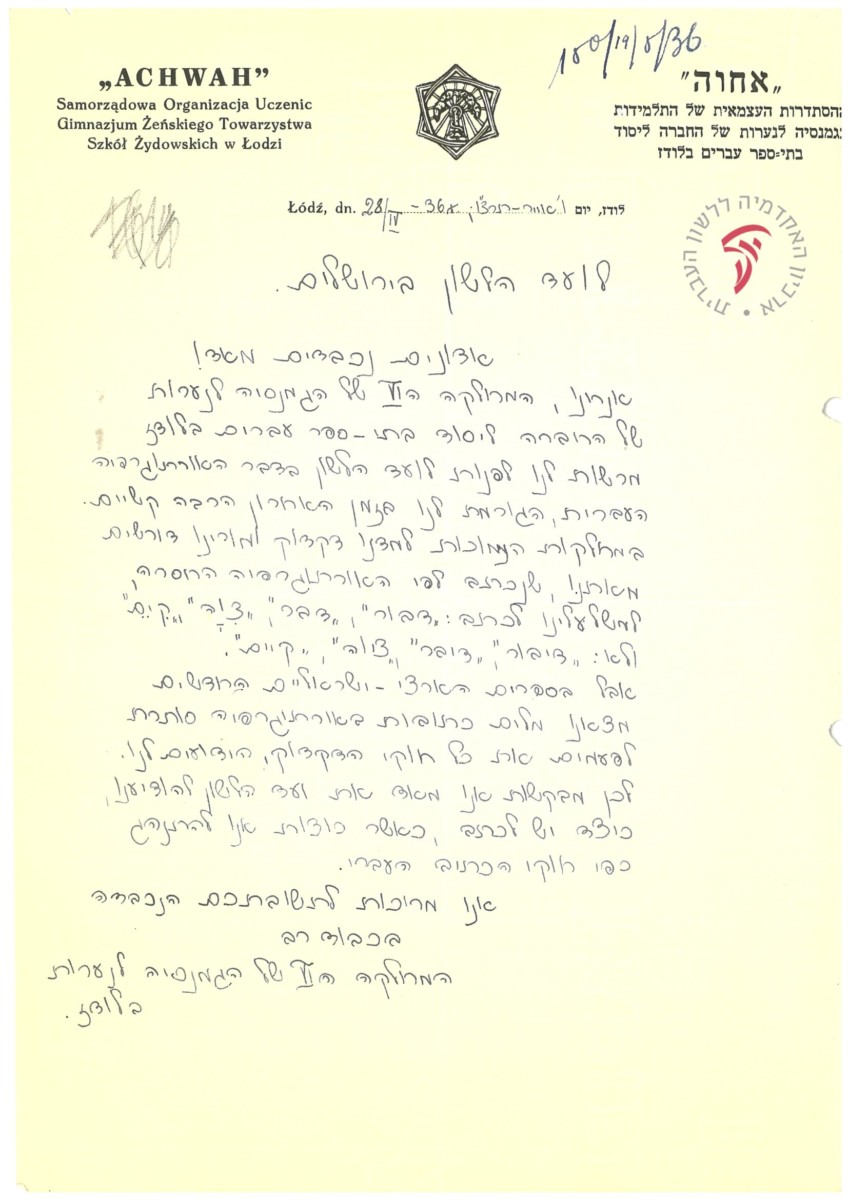 נתק/19/5/36
„ACHWAH”
Samorządowa Organizacja Uczenic
Gimnazjum Żeńskiego Towarzystwa
Szkół Żydowskich w Łodzi
„אחוה"
ההסתדרות העצמאית של התלמידות
בגמנסיה לנערות של החברה ליסוד
בתי=ספר עברים בלודז
Łódź, dn. 28/IV - 36 לודז, יום ו' אייר-תרצ"ו
האקדמיה ללשון העברית • ארכיון
לועד הלשון בירושלים.
אדונים נכבדים מאד!
אנחנו, המחלקה הVI של הגמנסיה לנערות
של החברה ליסוד בתי-ספר עברים בלודז
מרשות לנו לפנות לועד הלשון בדבר האורתוגרפיה
העברית, הגורמת לנו בזמן האחרון הרבה קשיים.
במחלקות הנמוכות למדנו דקדוק ומורינו דורשים
מאתנו, שנכתב לפי האורתוגרפיה החסרה,
למשל עלינו לכתב: „דבור", „דבר", „צִוָּה", „קַיֵּם"
ולא: „דיבור", „דיבר", „ציוה", „קיים".
אבל בספרים הארצי-ישראליים החדשים
מצאנו מלים כתובות באורתוגרפיה סותרת
לפעמים את כל חוקי הדקדוק, הידועים לנו.
לכן מבקשות אנו מאד את ועד הלשון להודיענו,
כיצד יש לכתב, כאשר רוצות אנו להתנהג
כפי חוקי הכתיב העברי.
אנו מחכות לתשובתכם הנכבדה
בכבוד רב
המחלקה הVI של הגמנסיה לנערות
בלודז.